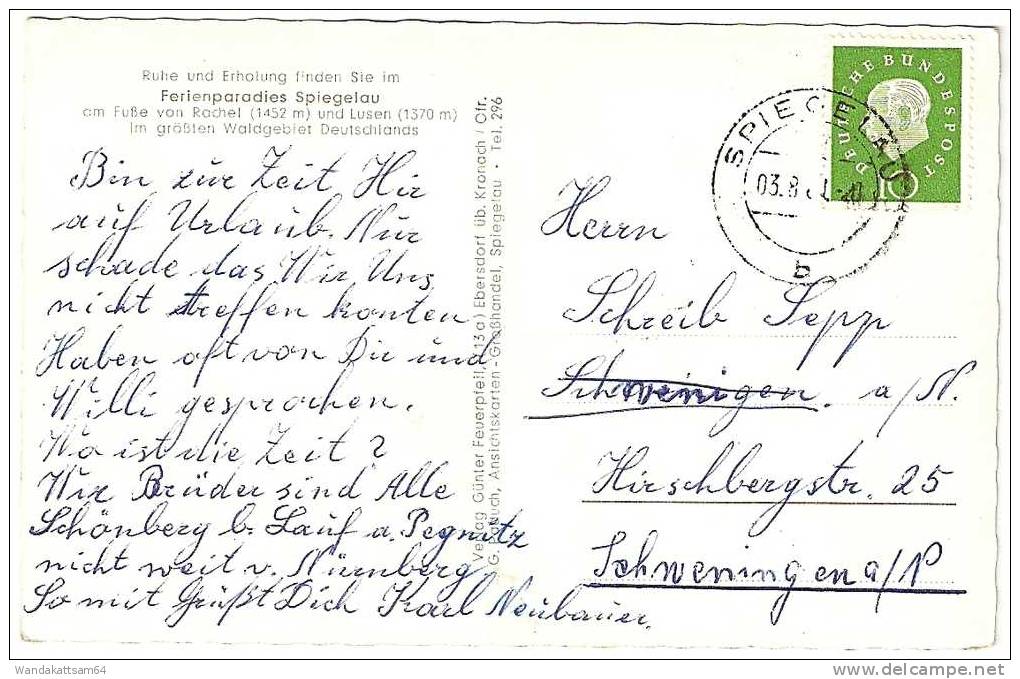 Ruhe und Erholung finden Sie im
Ferienparadies Spiegelau
am Fuße von Rachel (1452 m) und Lusen (1370 m)
Im größten Waldgebiet Deutschlands
Bin zur Zeit Hir
auf Urlaub. Nur
schade das Wir Uns
nicht treffen konten
Haben oft von Dir und
Willi gesprochen.
Wo ist die Zeit ?
Wir Brüder sind Alle
Schönberg b. Lauf a. Pegnitz
nicht weit v. Nürnberg
So mit Grüßt Dich Karl Neubauer.
Verlag Günter Feuerpfeil, (13a) Ebersdorf üb. Kronach / Ofr.
G. Ansichtskarten - Großhandel, Spiegelau • Tel. 296
DEUTSCHE BUNDESPOST
10
SPIEGELAU
03.8
b
Herrn
Schreib Sepp
Schwenigen. a/N.
Hirschbergstr. 25
Schweningen a/N
Wandakattsam64
www.delcampe.net